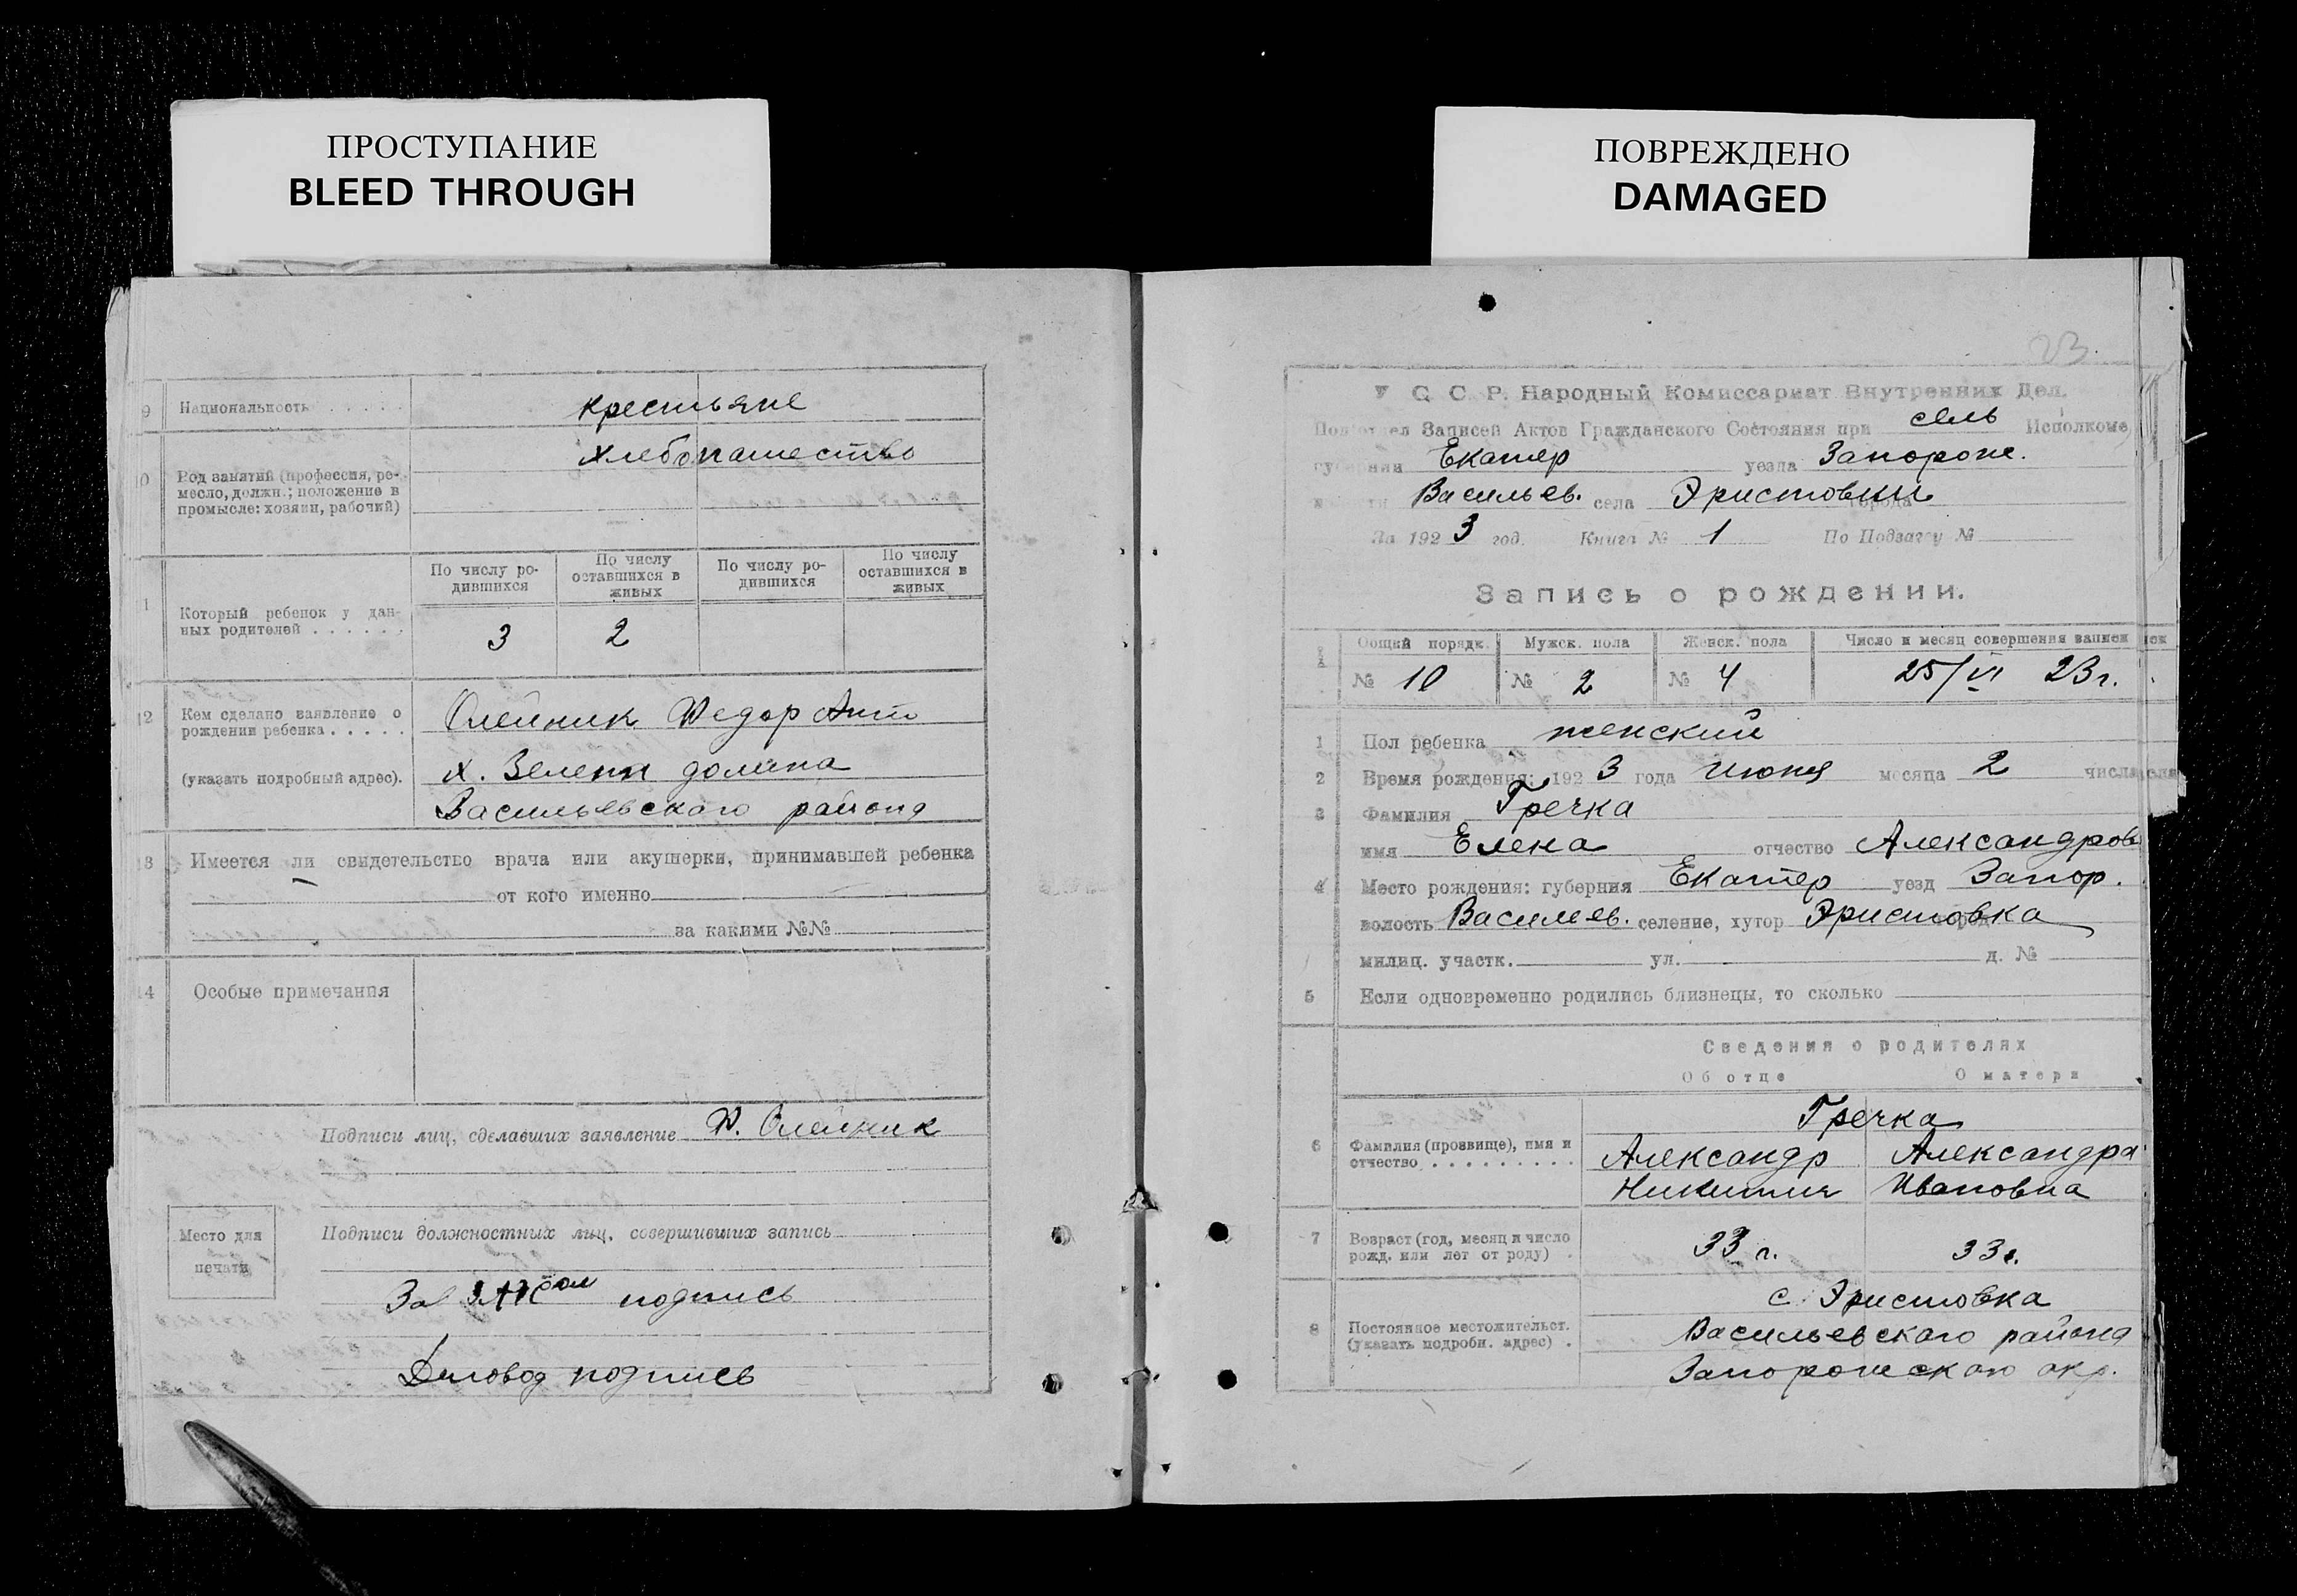 ПРОСТУПАНИЕ
BLEED THROUGH
9 Национальность . . . . . крестьяне
хлебопашество
10 Род занятий (профессия, ре-
месло, должн.; положение в
промысле: хозяин, рабочий)
1 Который ребенок у дан-
ных родителей . . . . . .
По числу ро-
дившихся
По числу
оставшихся в
живых
По числу ро-
дившихся
По числу
оставшихся в
живых
3 2
12 Кем сделано заявление о
рождении ребенка . . . . .
(указать подробный адрес).
Олейник Федор Ант
х. Зелени долина
Васильевского района
13 Имеется ли свидетельство врача или акушерки, принимавшей ребенка
от кого именно
за какими №№
14 Особые примечания
Подписи лиц, сделавших заявление Ф. Олейник
Место для
печати
Подписи должностных лиц, совершивших запись
Зав ЗАГСом подпись
Деловод подпись
ПОВРЕЖДЕНО
DAMAGED
23
У С С Р. Народный Комиссариат Внутренних Дел.
Подотдел Записей Актов Гражданского Состояния при сель Исполкоме
губернии Екатер уезда Запорож.
волости Васильев. села Эристовки города
За 1923 год. Книга № 1 По Подзагсу №
Запись о рождении.
Общий порядк. Мужск. пола Женск. пола Число и месяц совершения записи
№ 10 № 2 № 4 25/VI 23 г.
1 Пол ребенка женский
2 Время рождения: 1923 года Июня месяца 2 числа
3 Фамилия Гречка
имя Елена отчество Александров
4 Место рождения: губерния Екатер уезд Запор.
волость Васильев. селение, хутор Эристовка
милиц. участк. ул. д. №
5 Если одновременно родились близнецы, то сколько
Сведения о родителях
Об отце О матери
6 Фамилия (прозвище), имя и
отчество . . . . . . . . .
Гречка
Александр Александра
Никитич Ивановна
7 Возраст (год, месяц и число
рожд. или лет от роду) .
33 г. 33 г.
8 Постоянное местожительст.
(указать подробн. адрес) .
с. Эристовка
Васильевского района
Запорожского окр.